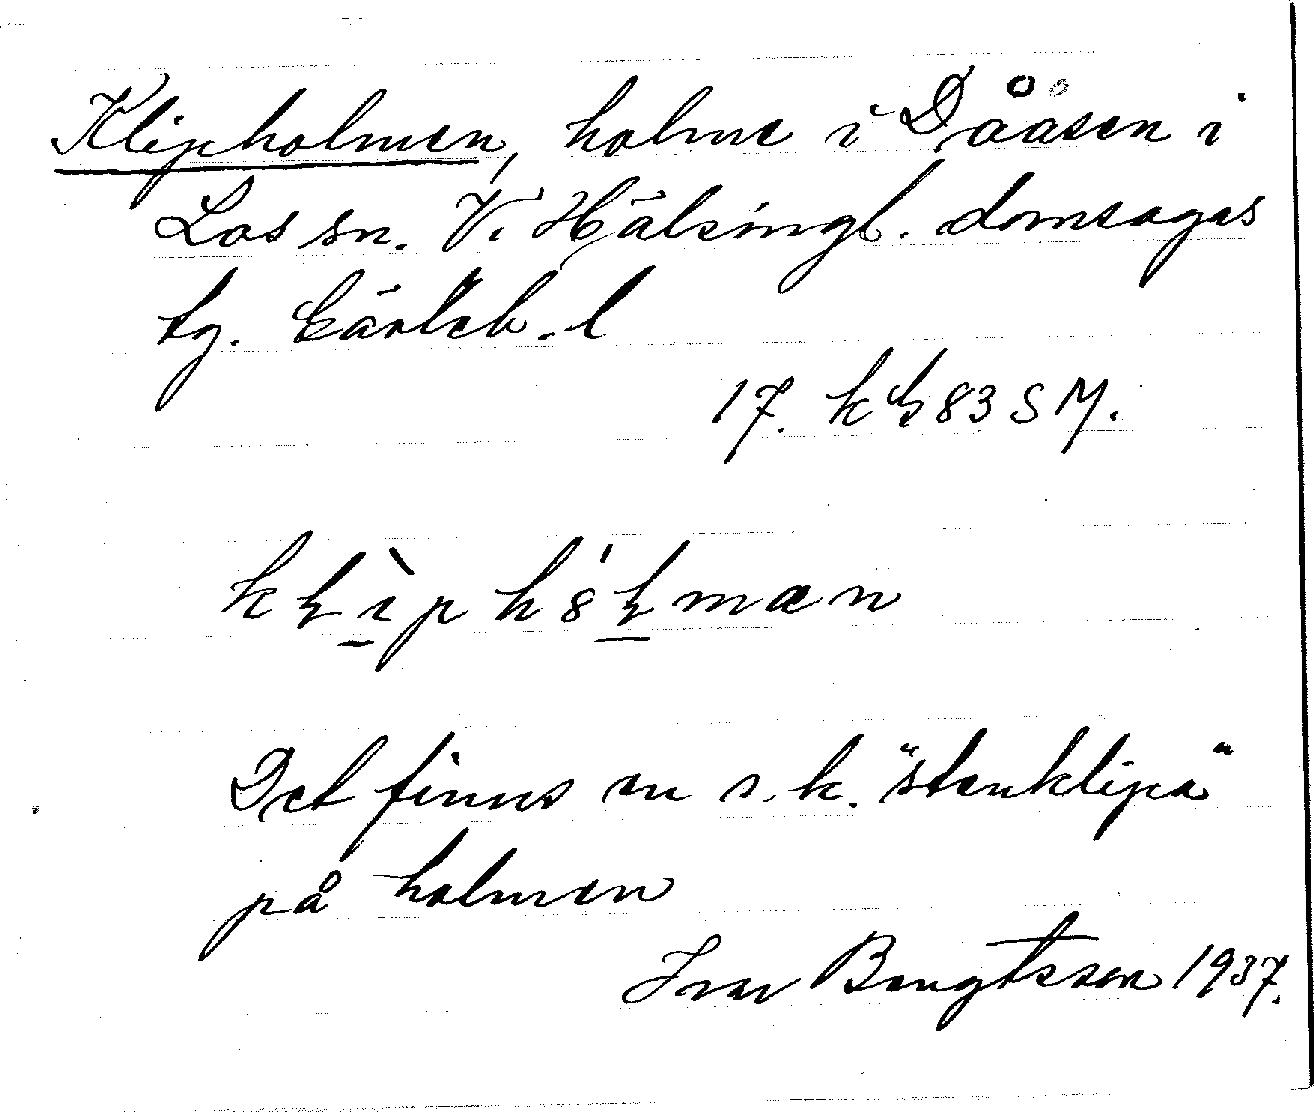 Klipholmen, holme i Dåasen i
Los sn. V. Hälsingl. domsagas
tg. Gävleb. l
17. k h 83 S M.
kḷìphóḷmæn
Det finns en s. k. "stenklipa"
på holmen
Ivar Bengtsson 1937.